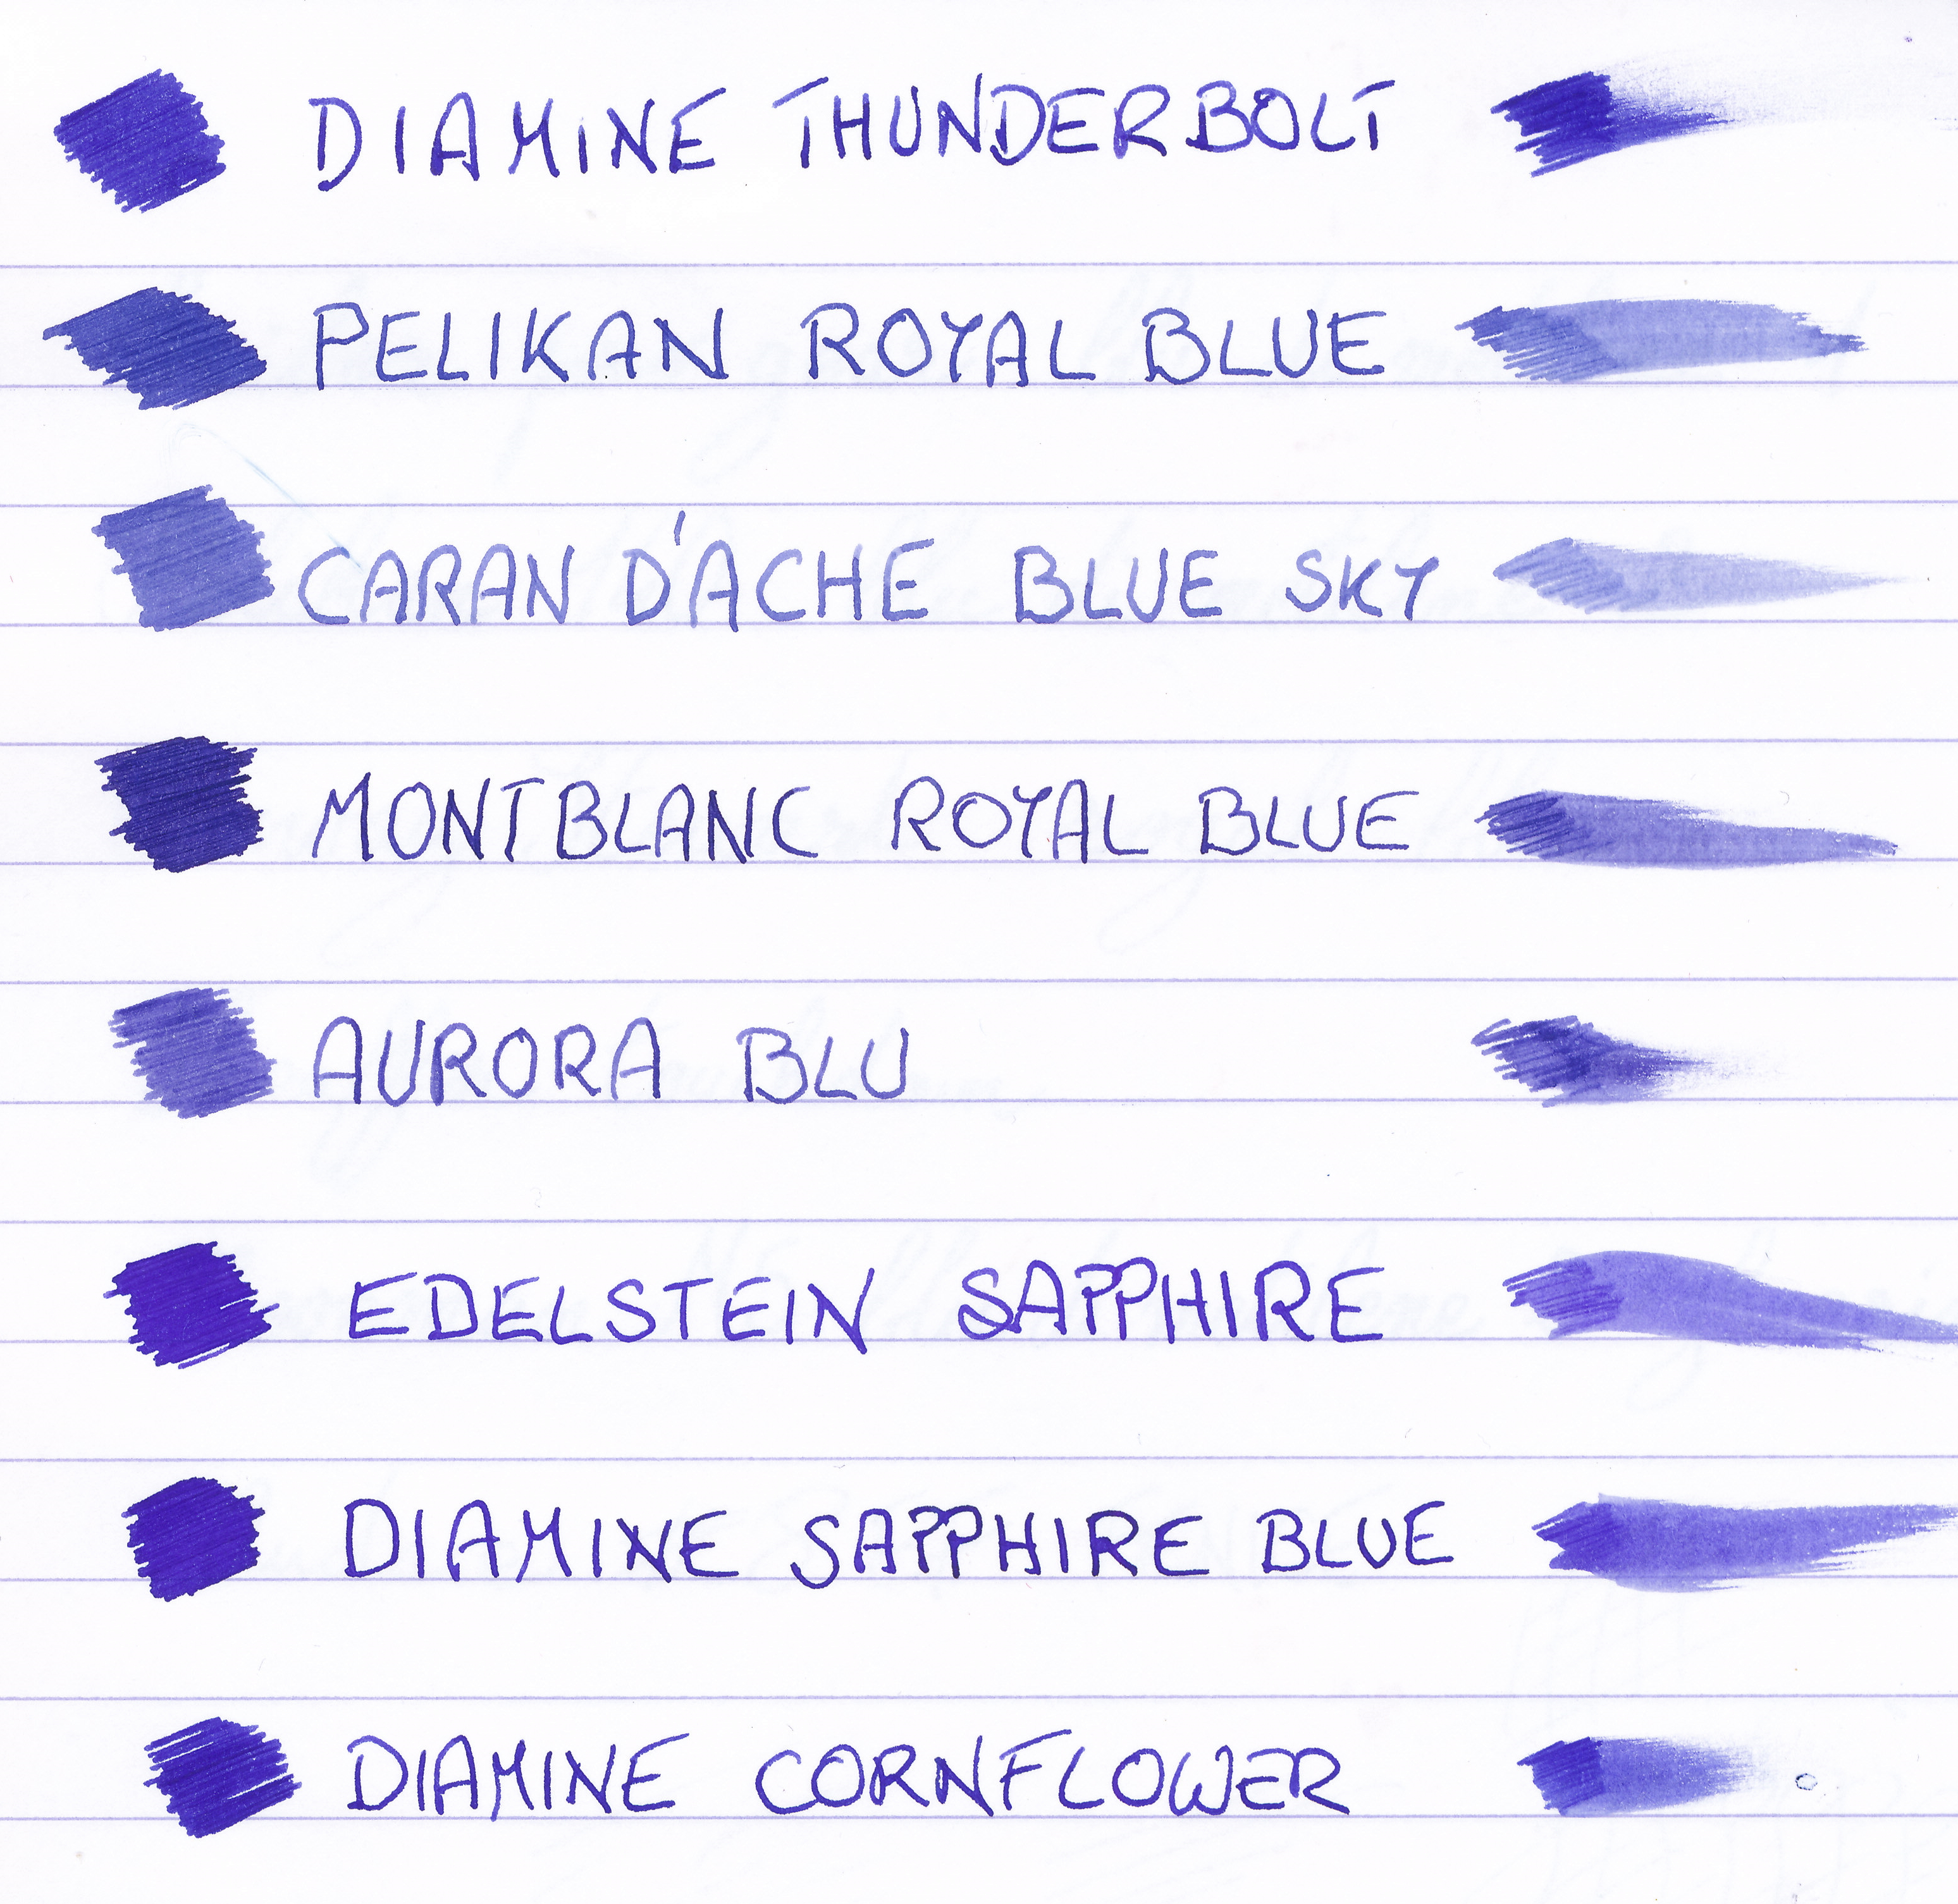 DIAMINE THUNDERBOLT
PELIKAN ROYAL BLUE
CARAN D'ACHE BLUE SKY
MONTBLANC ROYAL BLUE
AURORA BLU
EDELSTEIN SAPPHIRE
DIAMINE SAPPHIRE BLUE
DIAMINE CORNFLOWER